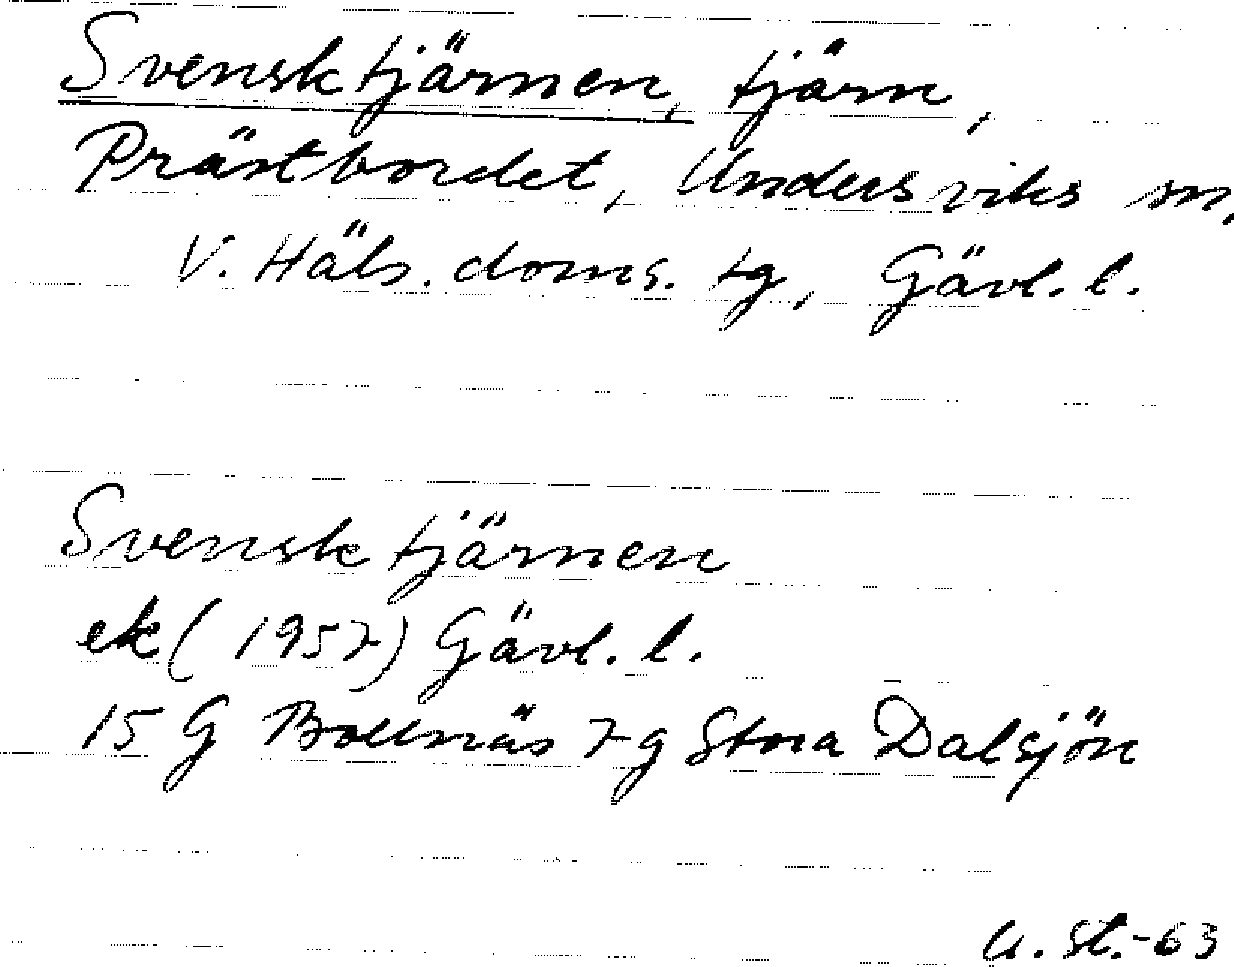 Svensktjärnen, tjärn,
Prästbordet, Undersviks sn,
V. Häls. doms. tg, Gävl. l.
Svensktjärnen
ek (1957) Gävl. l.
15 G Bollnäs 7 g Stora Dalsjön
U. St.-63